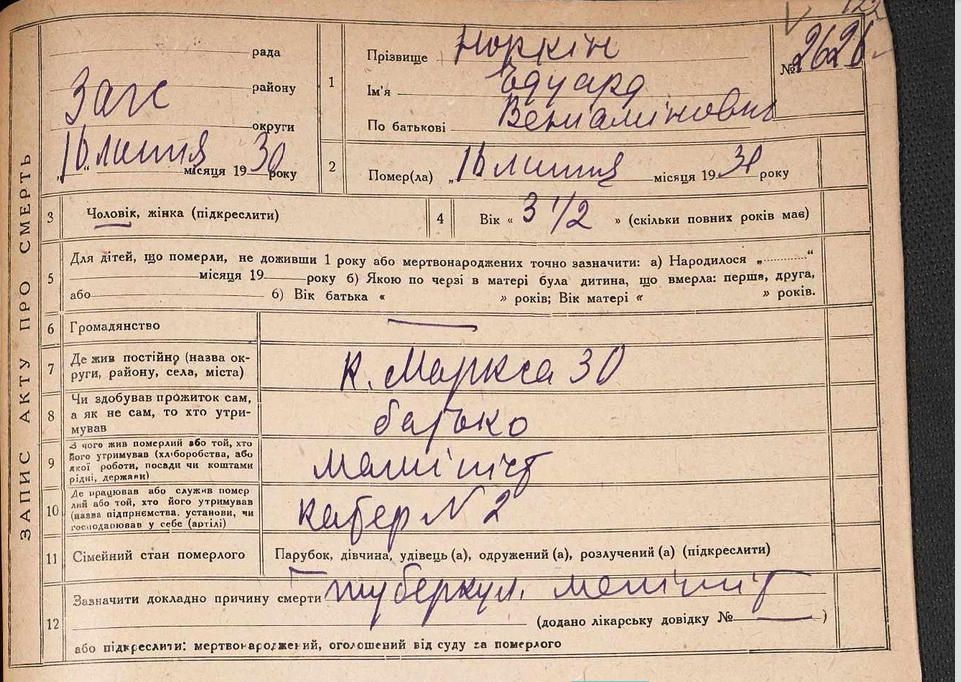 ЗАПИС АКТУ ПРО СМЕРТЬ
рада
Загс району
округи
„16 липня місяця 1930 року
1
Прізвище Норкін
Ім'я Едуард
По батькові Веніамінович
№ 2628
2
Помер(ла) „16 липня місяця 1930 року
3 Чоловік, жінка (підкреслити)
4 Вік « 3 1/2 » (скільки повних років має)
5 Для дітей, що померли, не доживши 1 року або мертвонароджених точно зазначити: а) Народилося „ “
місяця 19 року б) Якою по черзі в матері була дитина, що вмерла: перша, друга,
або б) Вік батька « » років; Вік матері « » років.
6 Громадянство —
7 Де жив постійно (назва ок-
руги, району, села, міста)
К. Маркса 30
8 Чи здобував прожиток сам,
а як не сам, то хто утри-
мував
батько
9 З чого жив померлий або той, хто
його утримував (хліборобства, або
якої роботи, посади чи коштами
рідні, держави)
машініст
10 Де працював або служив помер
лий або той, хто його утримував
(назва підприємства, установи, чи
господарював у себе (артілі)
№ 2
11 Сімейний стан померлого
Парубок, дівчина, удівець (а), одружений (а), розлучений (а) (підкреслити)
12 Зазначити докладно причину смерти туберкул. менінгіт
(додано лікарську довідку № — )
або підкреслити: мертвонароджений, оголошений від суду за померлого